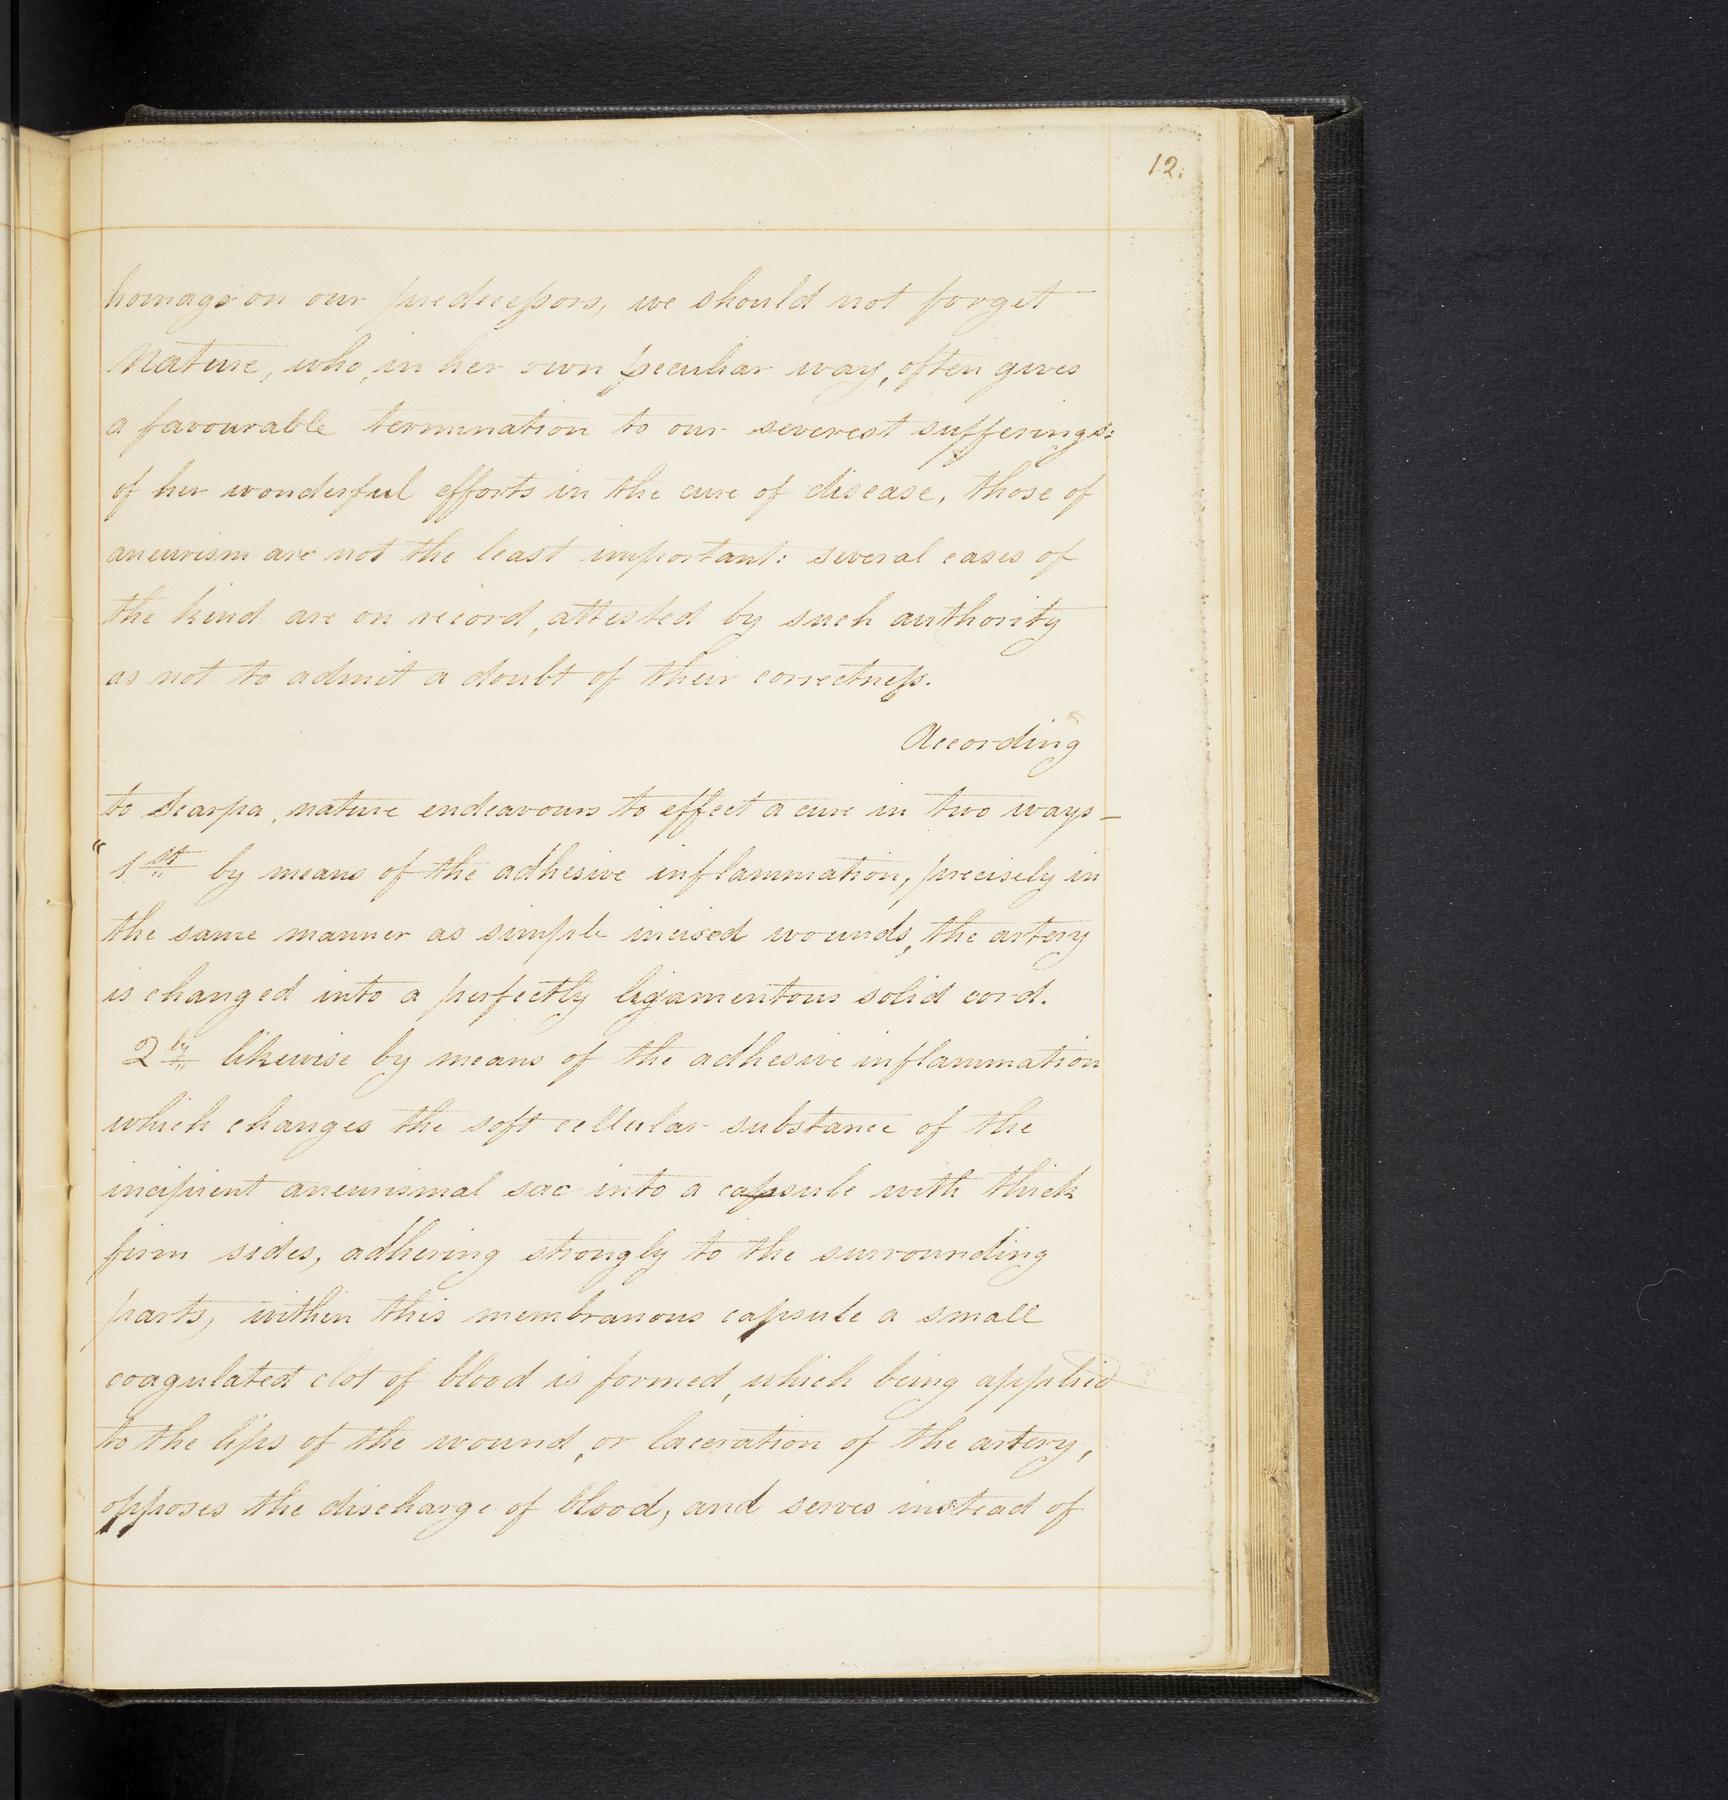 12.
homage on our predecessors, we should not forget
Nature, who, in her own peculiar way, often gives
a favourable termination to our severest sufferings:
of her wonderful efforts in the cure of disease, those of
aneurism are not the least important: several cases of
the kind are on record, attested by such authority
as not to admit a doubt of their correctness.
According
to Scarpa, nature endeavours to effect a cure in two ways—
"1st by means of the adhesive inflammation, precisely in
the same manner as simple incised wounds, the artery
is changed into a perfectly ligamentous solid cord.
2ly likewise by means of the adhesive inflammation
which changes the soft cellular substance of the
incipient aneurismal sac into a capsule with thick
firm sides, adhering strongly to the surrounding
parts, within this membranous capsule a small
coagulated clot of blood is formed, which being applied
to the lips of the wound, or laceration of the artery,
opposes the discharge of blood, and serves instead of